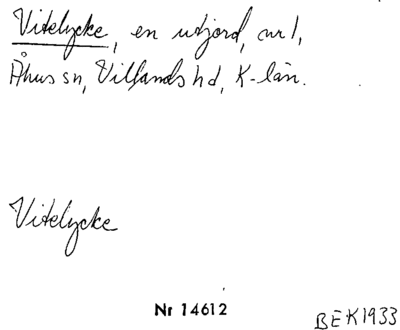 Vitelycke, en utjord, nr 1,
Åhus sn, Villands hd, K-län.
Vitelycke
Nr 14612
BEK1933